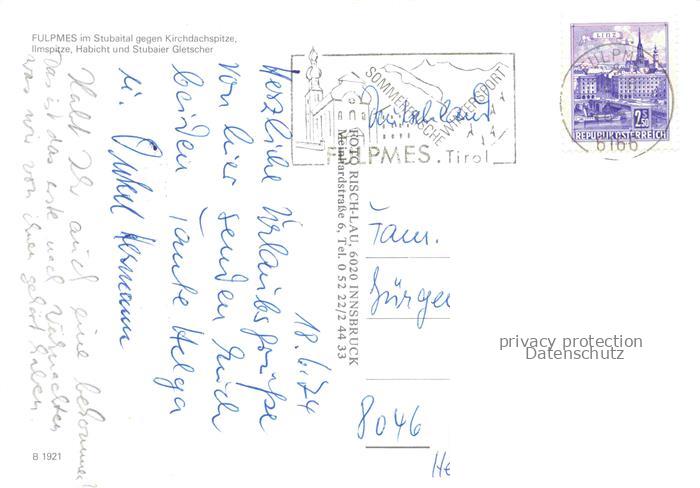 FULPMES im Stubaital gegen Kirchdachspitze,
Ilmspitze, Habicht und Stubaier Gletscher
18.6.74
Herzliche Urlaubsgrüße
von hier senden Euch
beiden Tante Helga
u. Onkel Hermann
Habt Ihr auch eine bekommen?
Das ist das erste nach Weihnachten
was wir von ihnen gehört haben.
B 1921
FOTO RISCH-LAU, 6020 INNSBRUCK
Meinhardstraße 6, Tel. 0 52 22/2 44 33
SOMMERFRISCHE WINTERSPORT
FULPMES. Tirol
LINZ
FULPMES
6166
2.50
S
REPUBLIK ÖSTERREICH
Deutschland
Fam.
Bürge
8046
He
privacy protection
Datenschutz